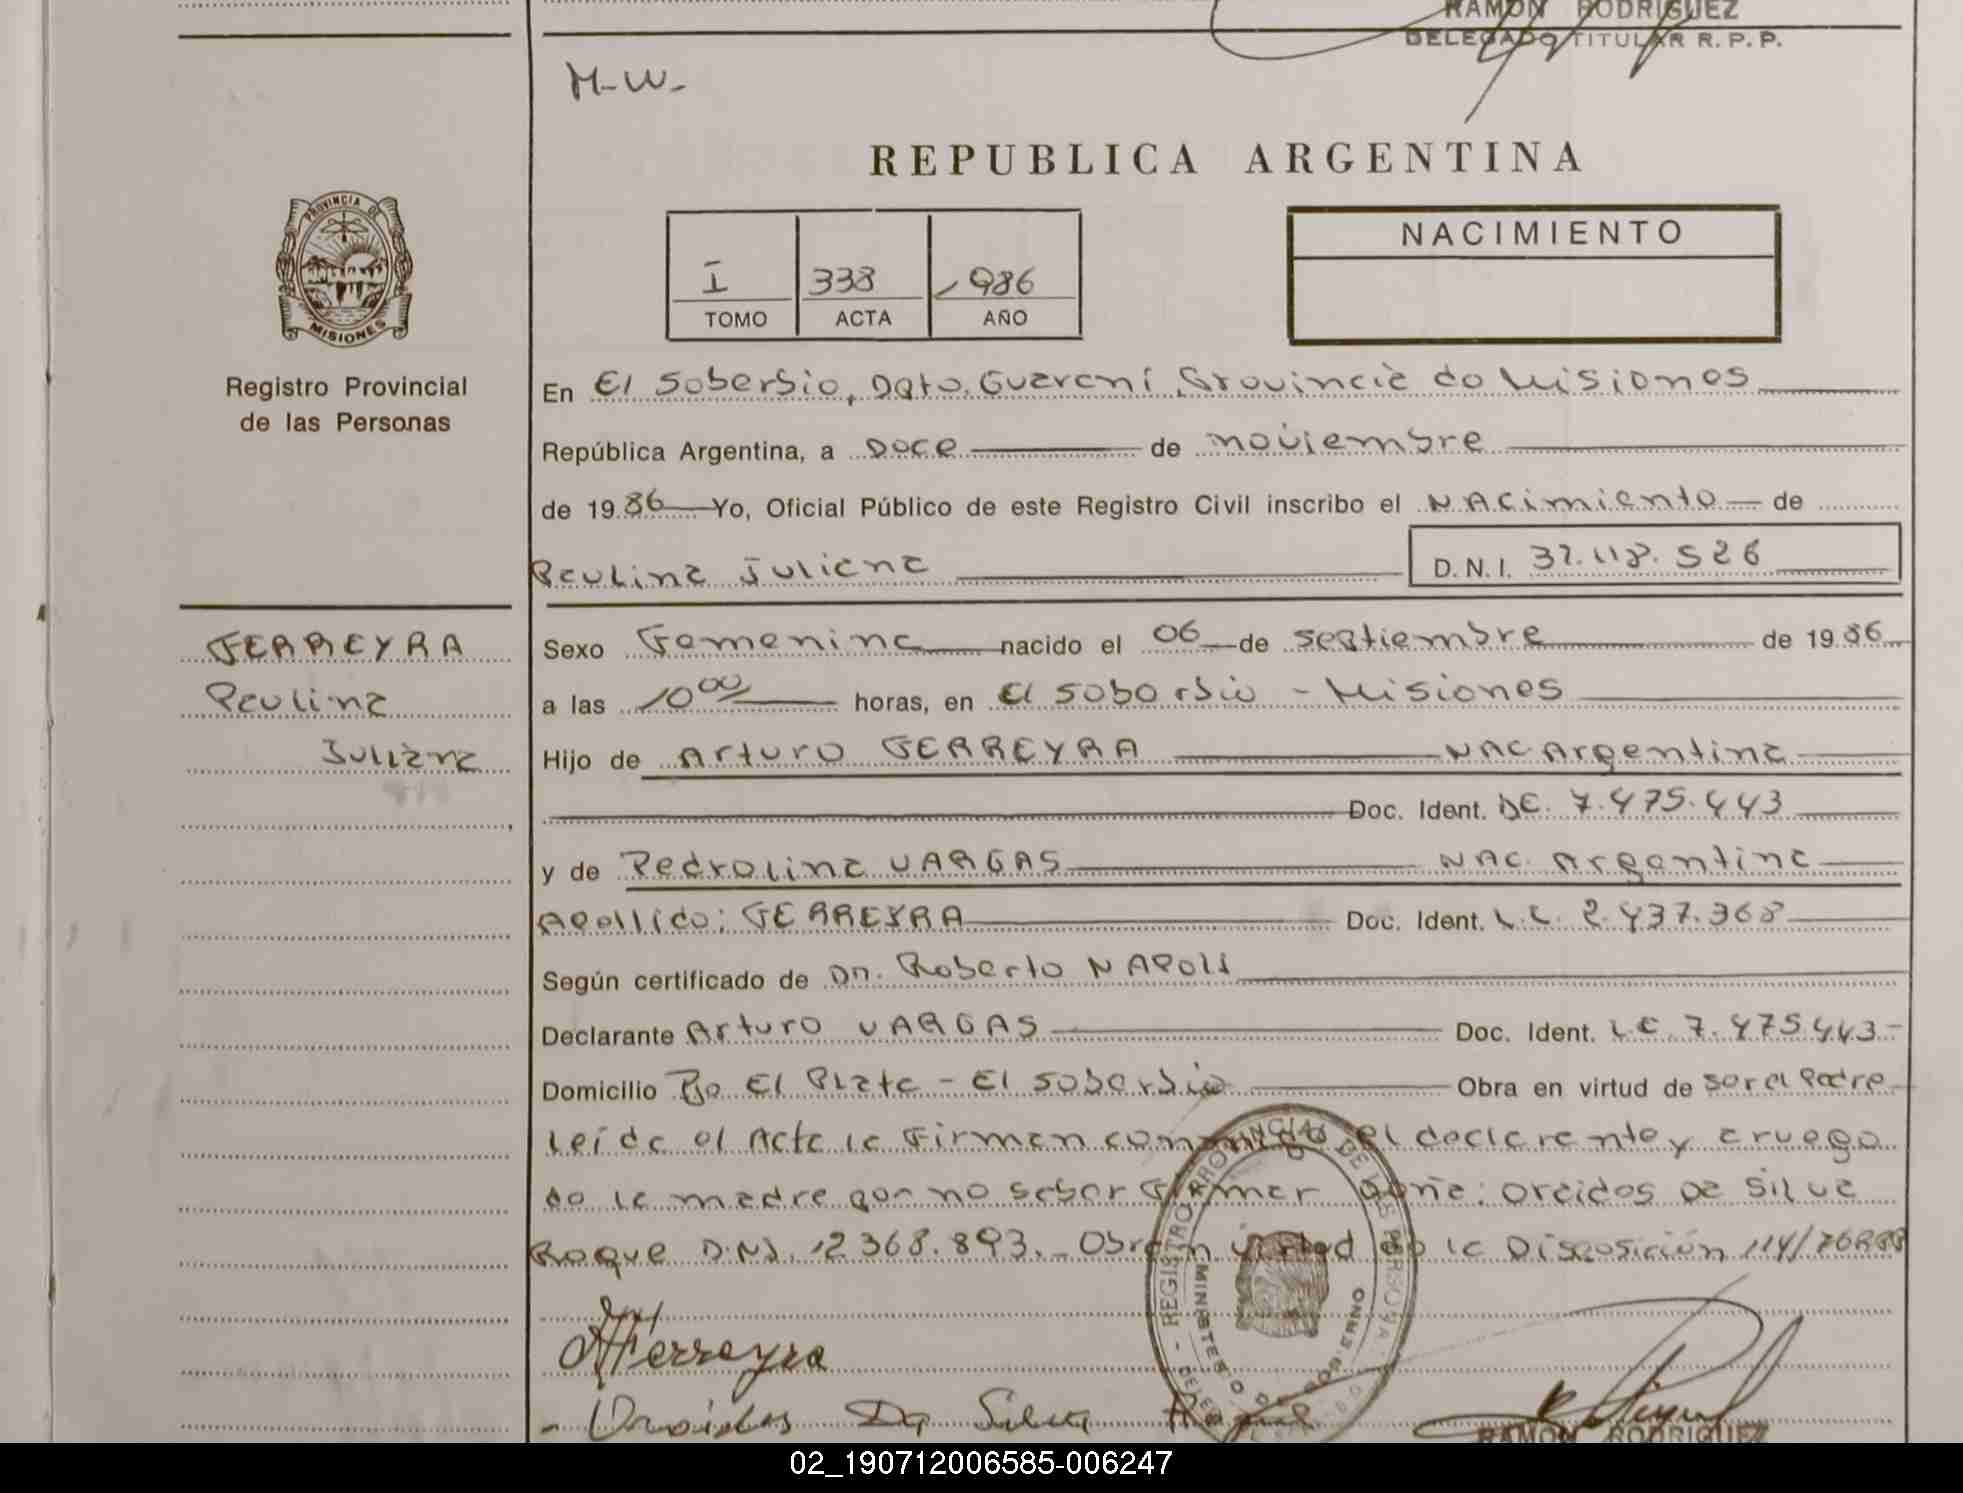 RAMON RODRIGUEZ
DELEGADO TITULAR R. P. P.
M-W-
REPUBLICA ARGENTINA
PROVINCIA DE
MISIONES
Registro Provincial
de las Personas
I 338 1986
TOMO ACTA AÑO
NACIMIENTO
En El Soberbio, Dpto. Guarani, Provincia de Misiones
República Argentina, a Doce de noviembre
de 1986 Yo, Oficial Público de este Registro Civil inscribo el NACimiento de
Paulina Juliana D.N.I. 32.118.526
FERREYRA
Paulina
Juliana
Sexo Femenina nacido el 06 de septiembre de 1986
a las 10 00 horas, en El Soberbio - Misiones
Hijo de Arturo FERREYRA NAC Argentina
Doc. Ident. DE. 7.475.443
y de Pedrolina VARGAS NAC. Argentina
Apellido: FERREYRA Doc. Ident. L.C. 2.437.368
Según certificado de Dn. Roberto NAPOLI
Declarante Arturo VARGAS Doc. Ident. L.E. 7.475.443-
Domicilio Bo El Plata - El Soberbio Obra en virtud de ser el Padre
Leída el Acta la Firman conmigo el declarante y aruego
de la madre por no saber Firmar Doña: Orcidos DA SILVA
Roque D.N.I. 12.368.893.- Obra en virtud de la Disposición 114/76RPP
REGISTRO PROVINCIAL DE LAS PERSONAS
MINISTERIO DE GOBIERNO
Ferreyra
Orcides Da Silva Roque
RAMON RODRIGUEZ
02_190712006585-006247